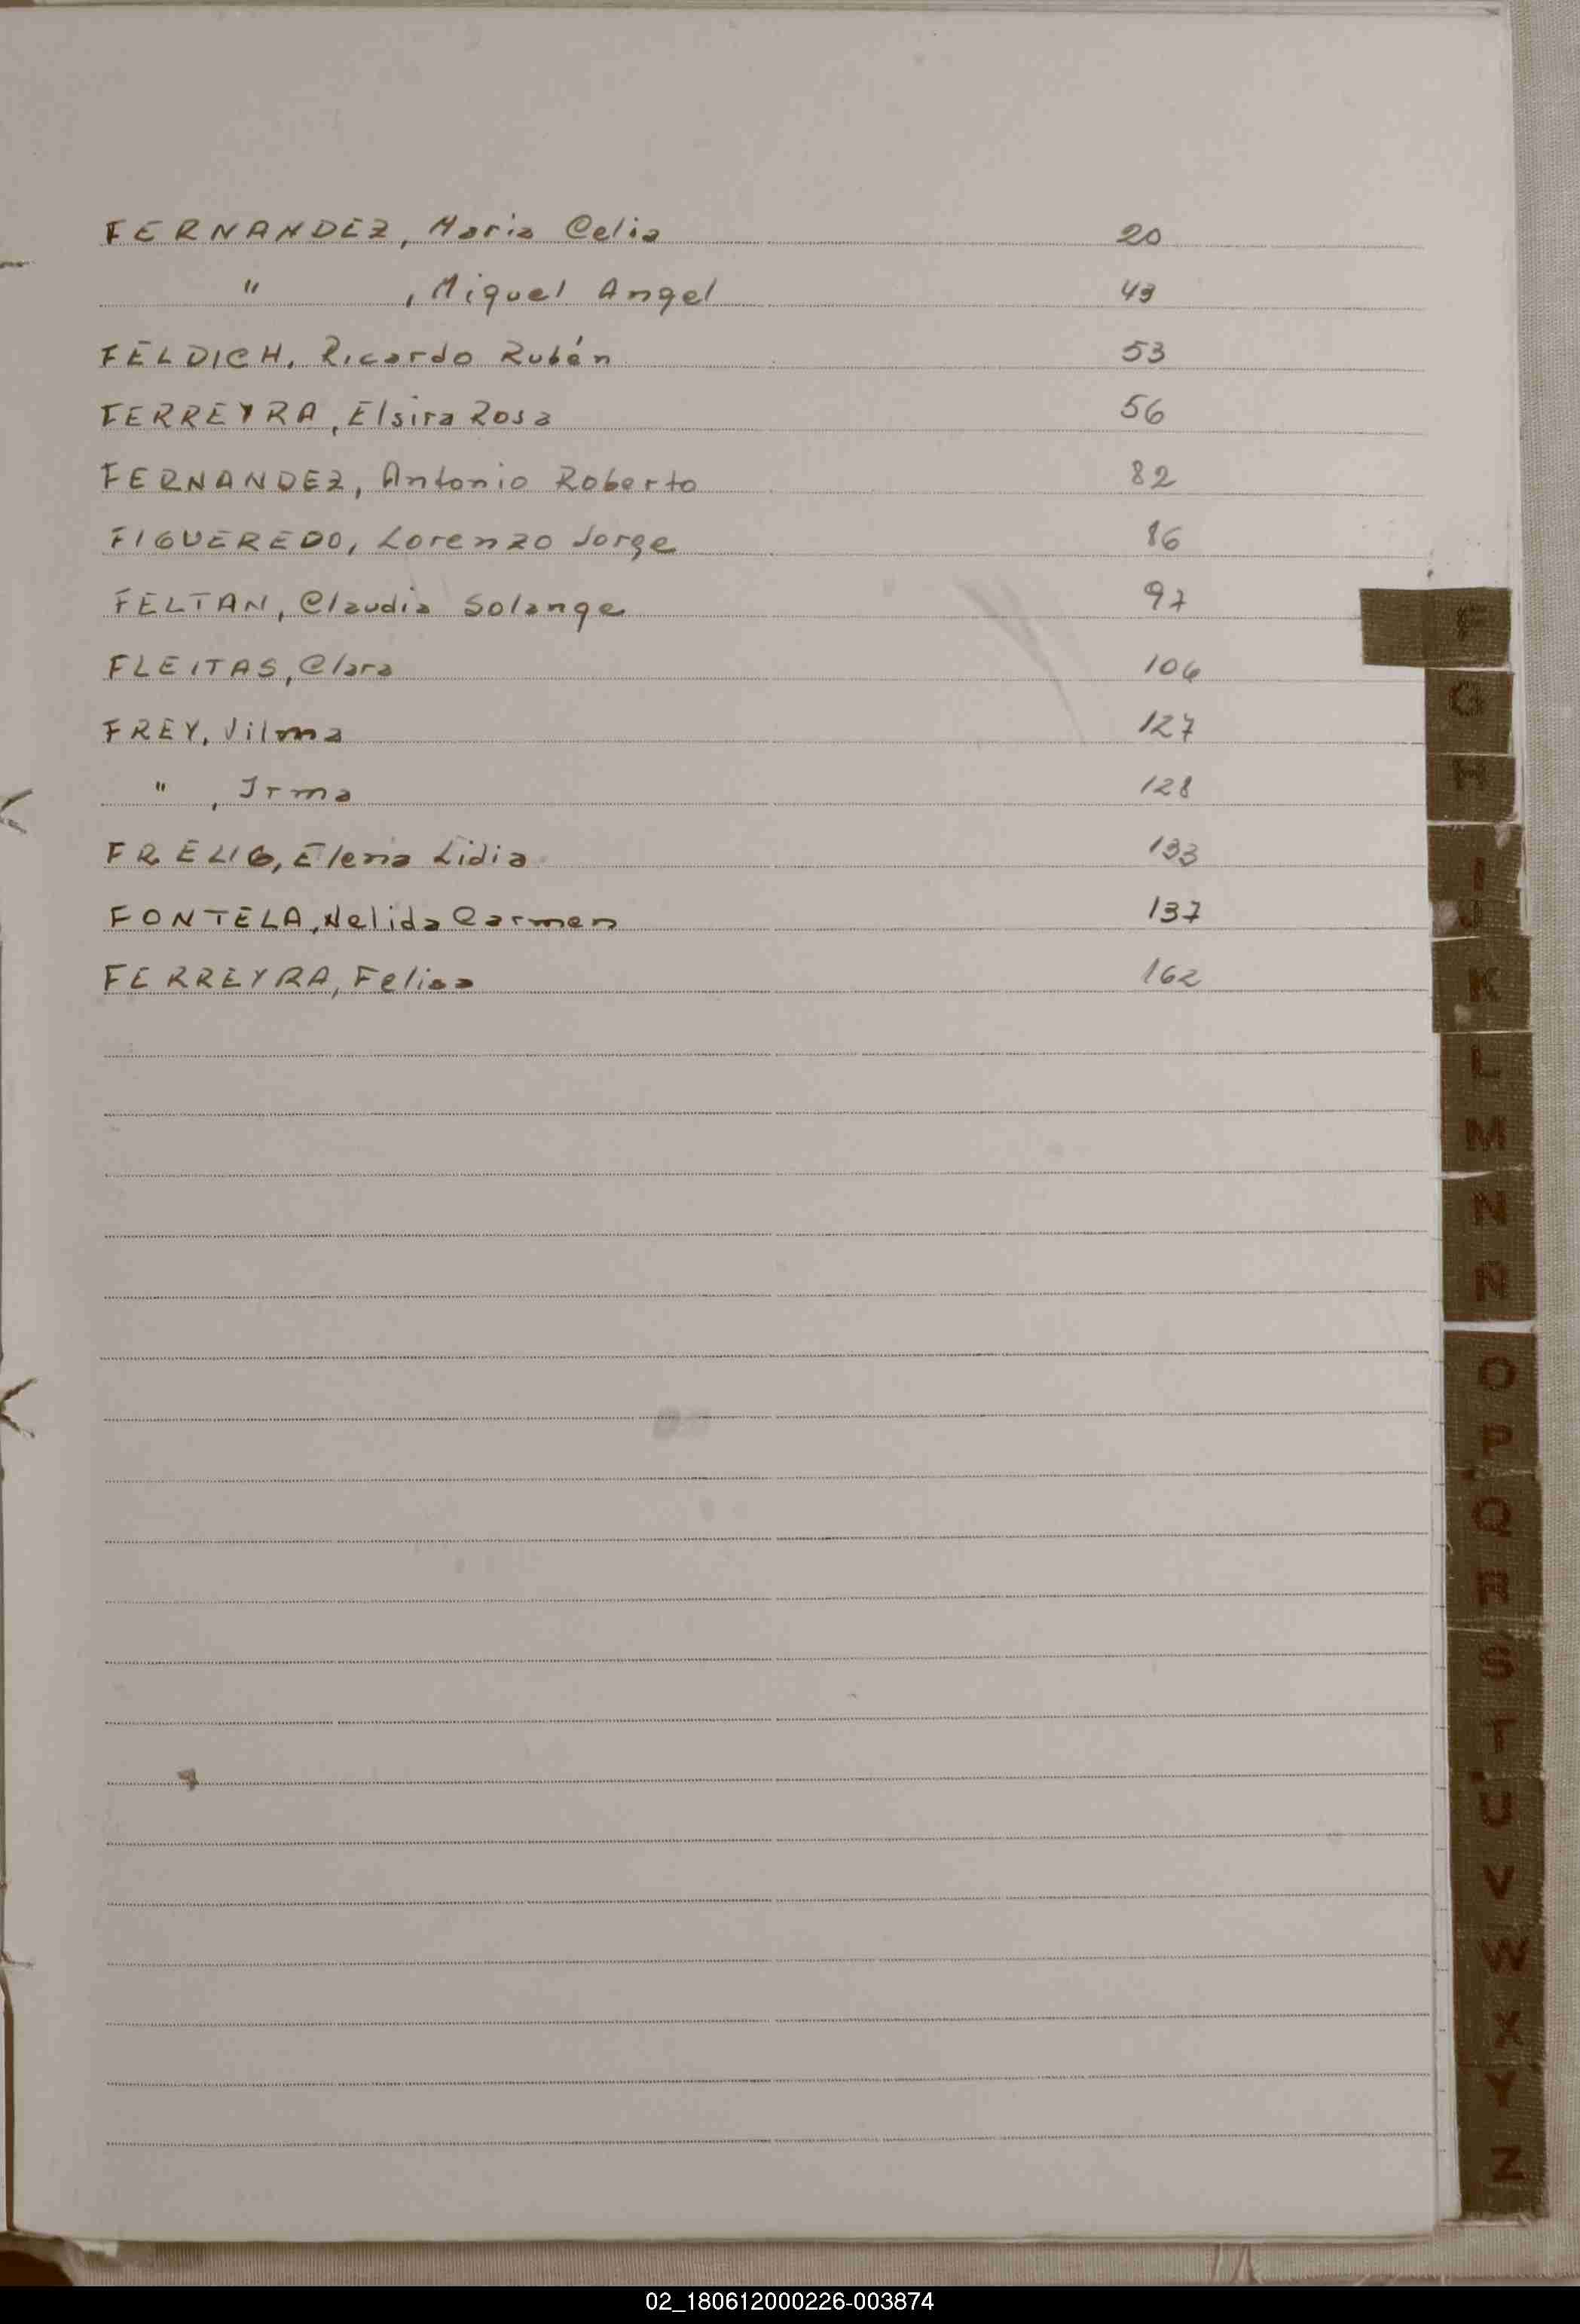 FERNANDEZ, Maria Celia 20
" , Miguel Angel 43
FELDICH, Ricardo Rubén 53
FERREYRA, Elsira Rosa 56
FERNANDEZ, Antonio Roberto 82
FIGUEREDO, Lorenzo Jorge 86
FELTAN, Claudia Solange 97
FLEITAS, Clara 106
FREY, Vilma 127
" , Irma 128
FRELIG, Elena Lidia 133
FONTELA, Nelida Carmen 137
FERREYRA, Felisa 162
F
G
H
I
J
K
L
M
N
Ñ
O
P
Q
R
S
T
U
V
W
X
Y
Z
02_180612000226-003874